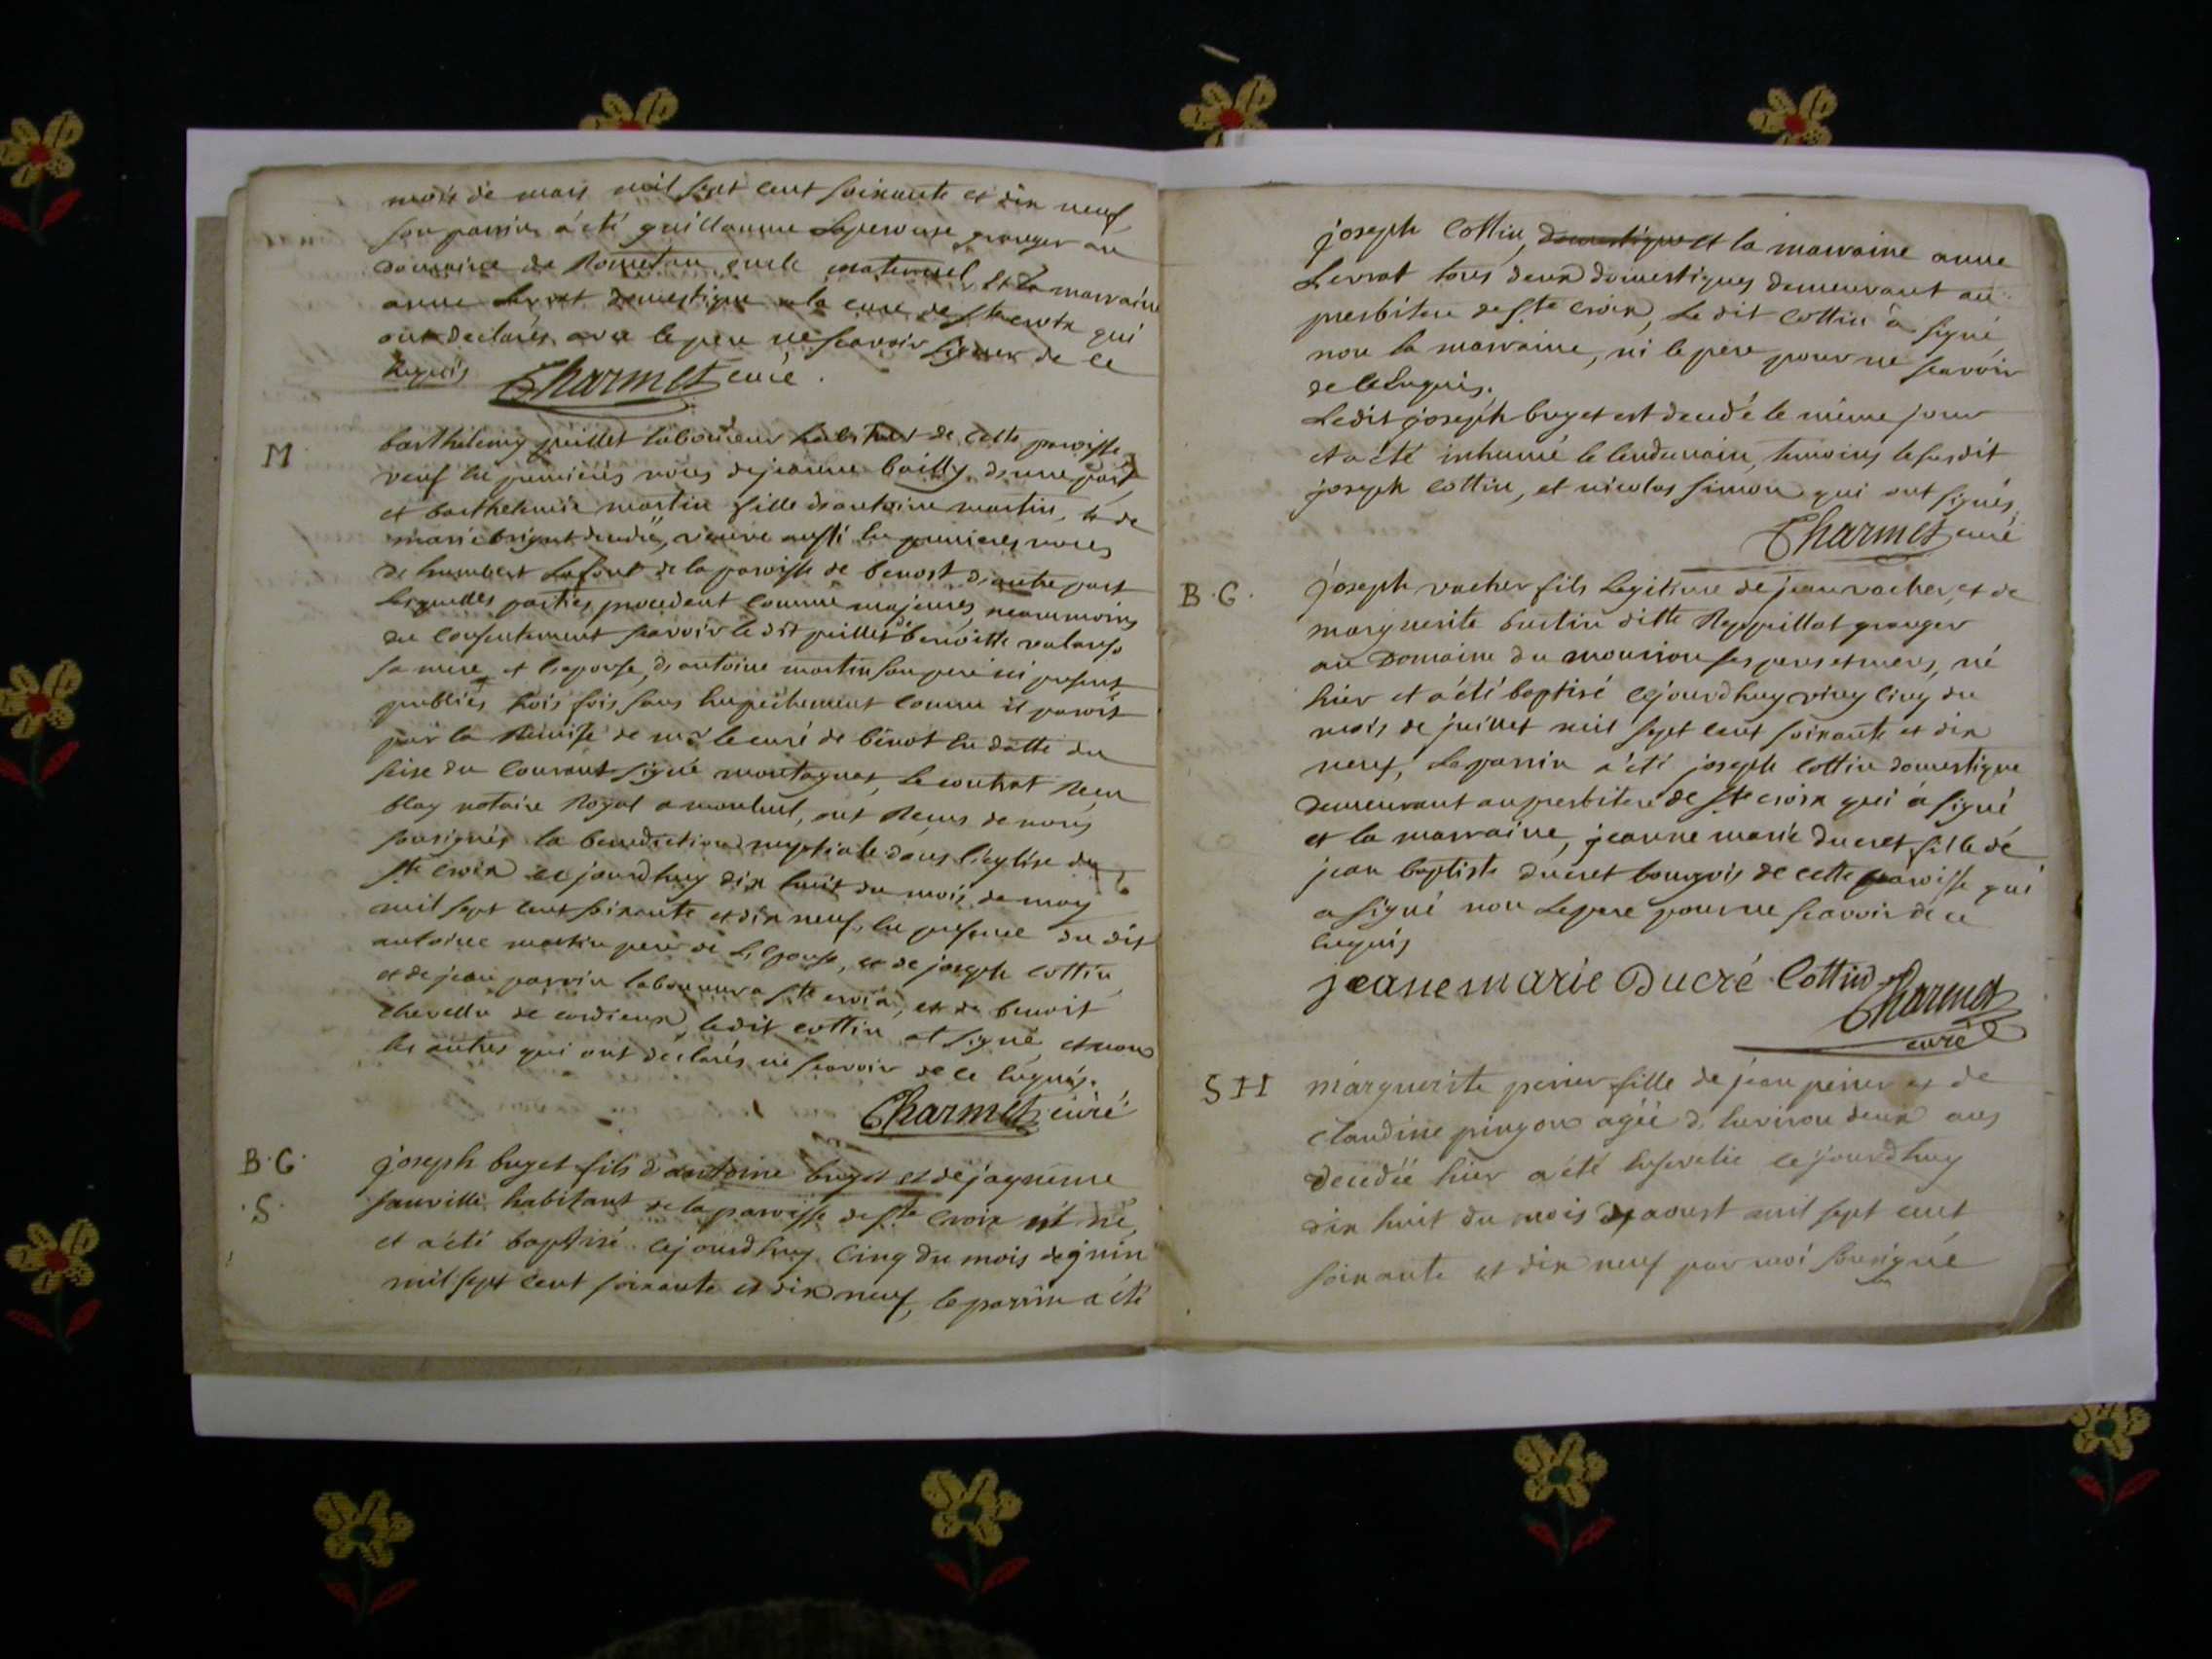 mois de mars mil sept cent soixante et dix neuf
son parrin a été guillaume Laperouse granger au
domaine de Rometan oncle maternel et la marraine
anne Levrat domestique a la cure de Ste croix qui
ont declarés avec le pere ne scavoir signer de ce
Enquis Charmet curé.
M barthelemy juillet laboureur habitant de cette paroisse
veuf en premieres noces de jeanne bailly d'une part
et barthelemie martin fille d'antoine martin, et de
marie brigat decedée, veuve aussi en premieres noces
de humbert Lafont de la paroisse de benost d'autre part
Lesquelles parties procedent comme majeures, neanmoins
du consentement scavoir le dit juillet de benoitte
sa mere et l'epouse, d'antoine martin son pere ici present
publiés trois fois sans Empechement comme il paroit
par la Remise de mr le curé de bénost En datte du
seise du courant signé montagnat, Le contrat Recu
blay notaire Royal a montluel, ont Reçus de nous
sousignés la benediction nuptiale dans l'eglise de
Ste croix ce jourdhuy dix huit du mois de may
mil sept cent soixante et dix neuf, En presence du dit
antoine martin pere de L'epouse, et de joseph cottin
et de jean parrin laboureur a Ste croix, et de benoit
chevellu de cordieux, le dit cottin at signé, et non
les autres qui ont déclarés ne scavoir de ce Enquis.
Charmet curé
B.G. joseph buget fils d'antoine buget et de jaquême
.S. sauville habitant de la paroisse de Ste Croix est né,
et a été baptisé cejourdhuy Cinq du mois de juin
mil sept cent soixante et dix neuf, le parrin a été
joseph Cottin, domestique et la marraine anne
Levrat tous deux domestiques demeurant au
presbitere de Ste croix, Le dit cottin a signé
non la marraine, ni le pere pour ne scavoir
de ce Enquis.
Le dit joseph buget est decedé le même jour
et a été inhumé le lendemain, temoins le susdit
joseph cottin, et nicolas simon qui ont signés.
Charmet curé
B.G. joseph vacher fils Legitime de jean vacher, et de
marguerite burtin ditte Reppillat granger
au Domaine du mourion ses peres et meres, né
hier et a été baptisé cejourdhuy vinq cinq du
mois de juillet mil sept cent soixante et dix
neuf, Le parrin a été joseph Cottin domestique
demeurant au presbitere de Ste croix qui a signé
et la marraine, jeanne marie ducret fille de
jean baptiste ducret bourgois de cette paroisse qui
a signé non Le pere pour ne scavoir de ce
Enquis
jeane marie Ducré Cottin Charmet
curé
SH marguerite perier fille de jean perier et de
claudine pingon agée d'Environ deux ans
decedée hier a été Ensevelie cejourdhuy
dix huit du mois d'aoust mil sept cent
soixante et dix neuf par moi sousigné